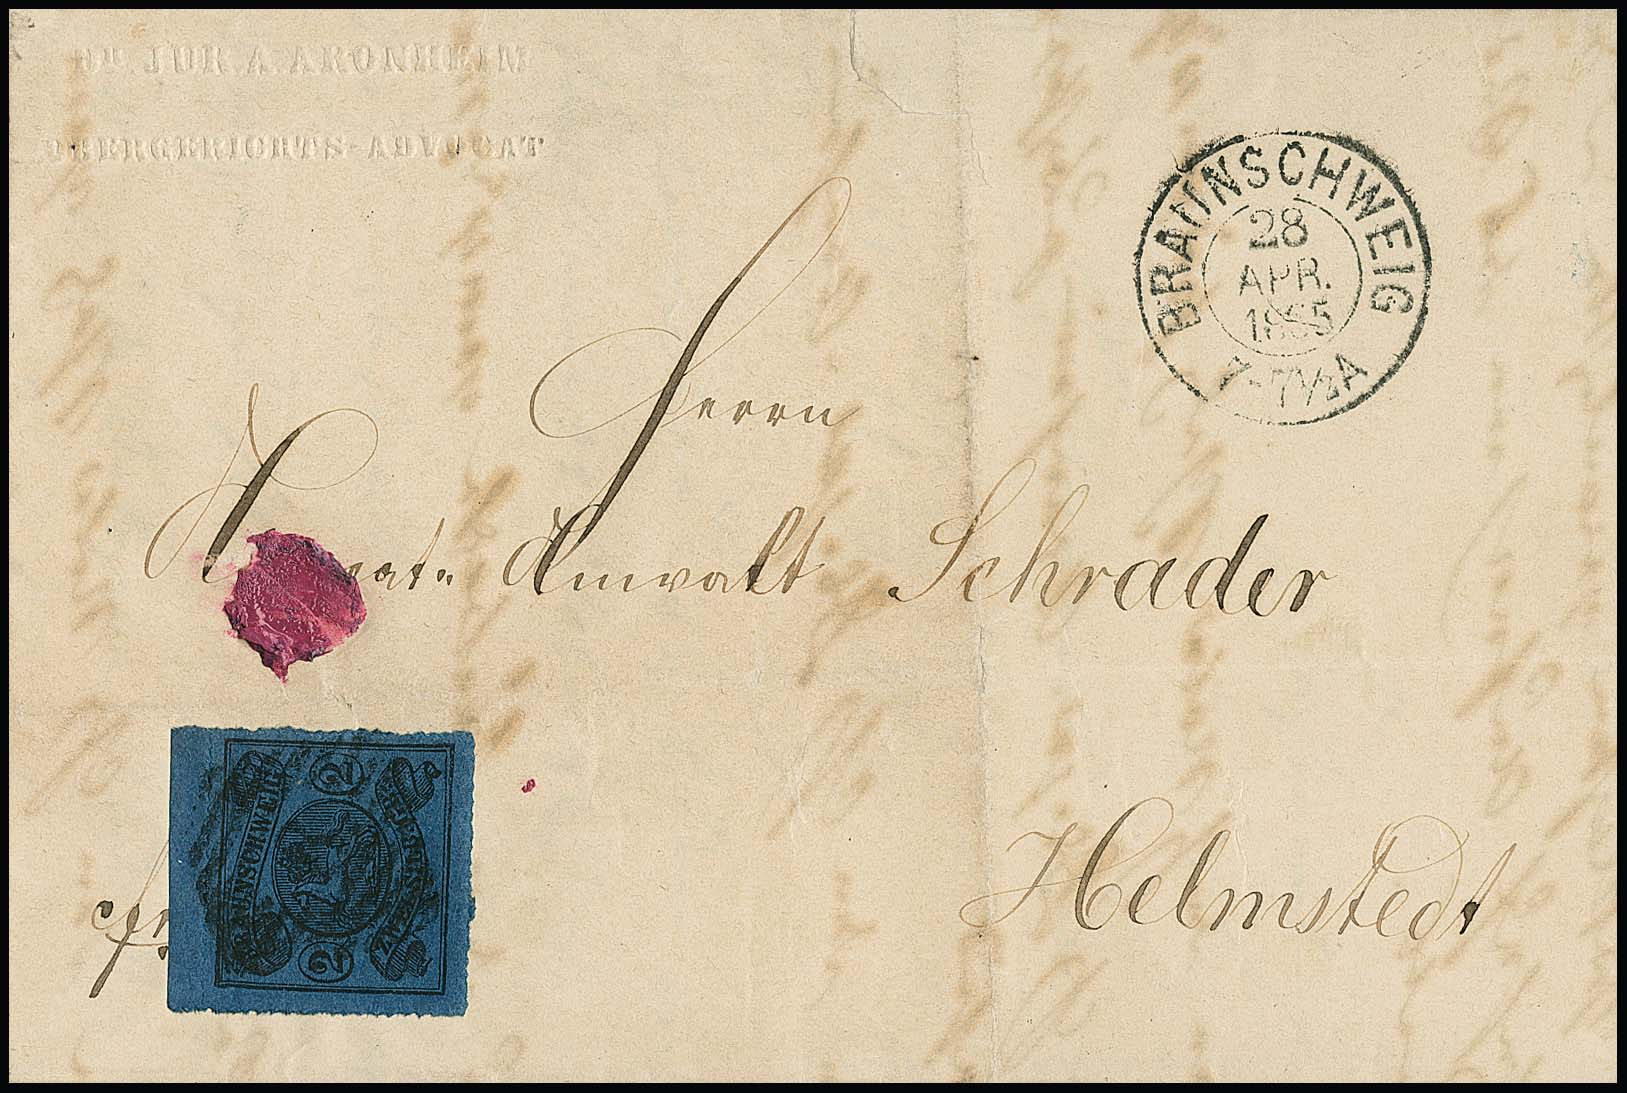 Dr. JUR. A. ARONHEIM
OBERGERICHTS-ADVOCAT
BRAUNSCHWEIG
28
APR.
1865
7-7½A
Herrn
Anwalt Schrader
Helmstedt
fr
BRAUNSCHWEIG
2
2
ZWEI SILBERGR.